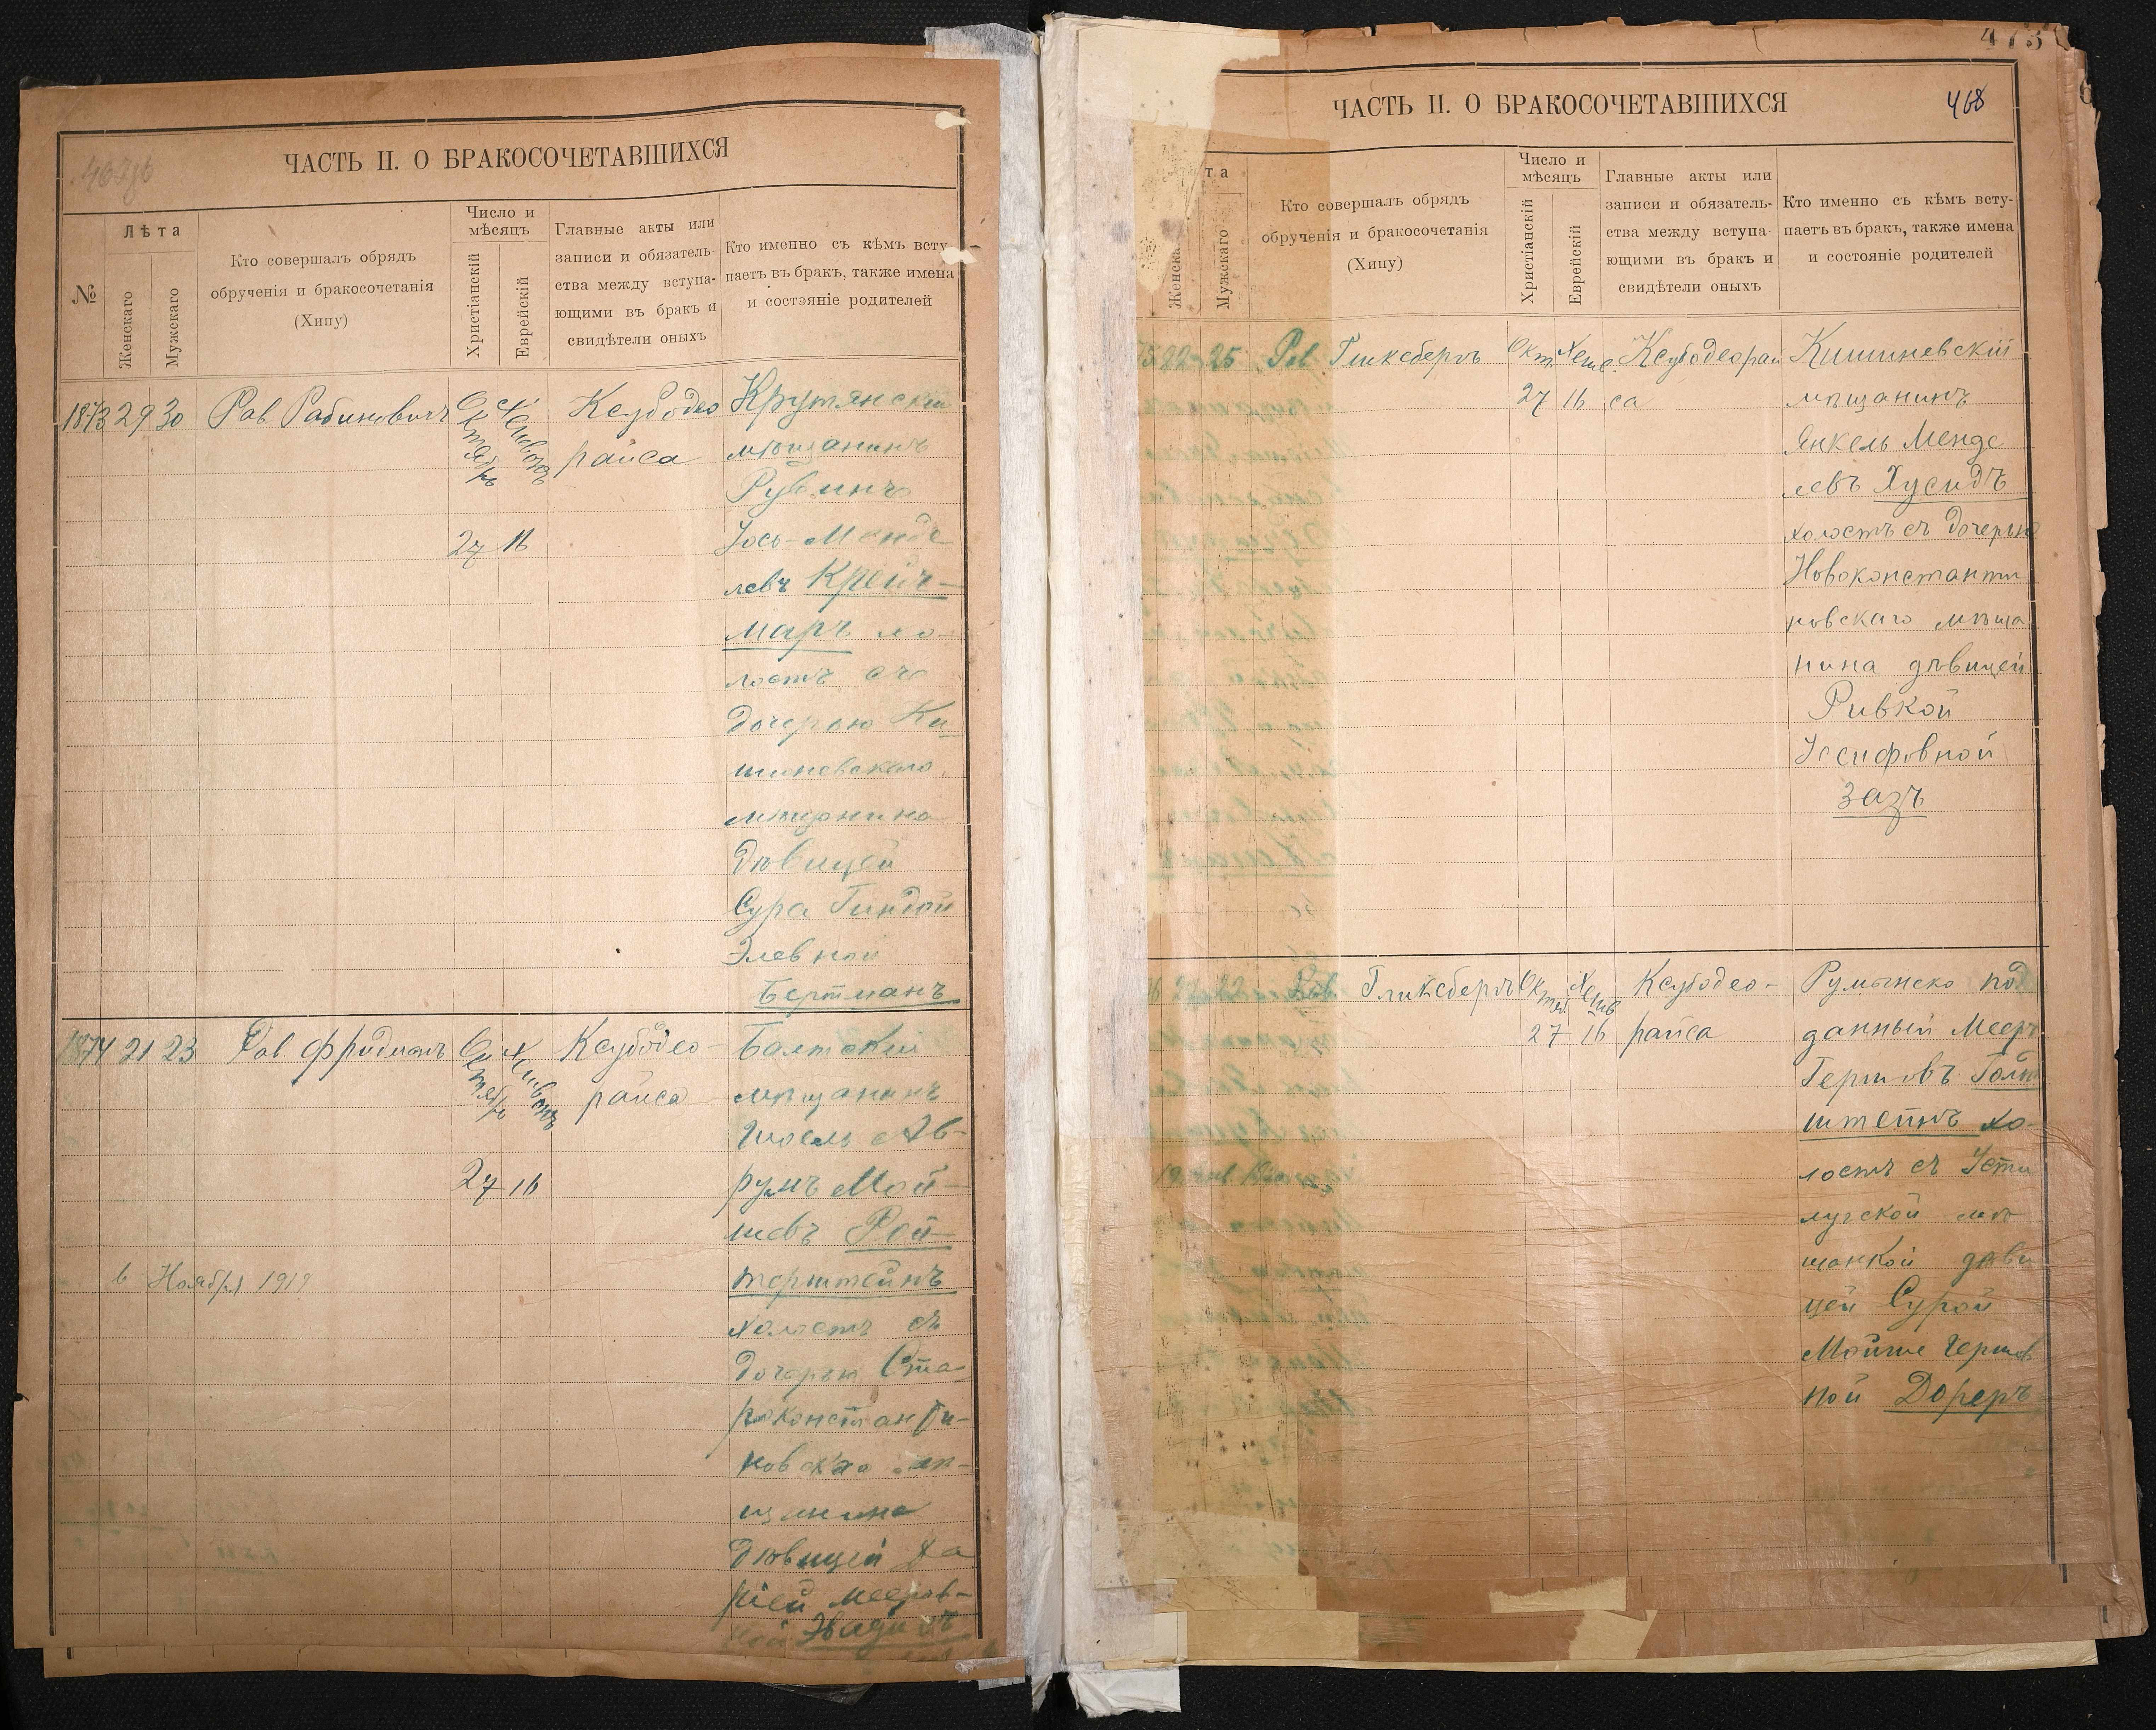 ЧАСТЬ II. О БРАКОСОЧЕТАВШИХСЯ
№
Лѣта
Женскаго
Мужскаго
Кто совершалъ обрядъ
обрученія и бракосочетанія
(Хипу)
Число и
мѣсяцъ
Христіанскій
Еврейскій
Главные акты или
записи и обязатель-
ства между вступа-
ющими въ бракъ и
свидѣтели оныхъ
Кто именно съ кѣмъ всту-
паетъ въ бракъ, также имена
и состэяніе родителей
1873 29 30 Рав. Рабиновичъ
Октябрь
27 16
Ксубодео
раиса
Крутянскій
мѣщанинъ
Рувинъ
Іось-Менде
левъ Крейч-
маръ хо-
лостъ съ
дочерью Ки-
шиневскаго
мѣщанина
дѣвицей
Сура Гиндой
Элевной
Бертманъ
1874 21 23 Рав. Фридманъ
Октябрь
27 16
Ксубодео-
раиса
Балтскій
мѣщанинъ
Шоель Ав-
румъ Мой-
шевъ Рой-
терштейнъ
холостъ съ
дочерью Ста
роконстанти-
новскаго мѣ-
щанина
дѣвицей Ха
Мееров-
6 Ноября 1919
473
ЧАСТЬ II. О БРАКОСОЧЕТАВШИХСЯ
468
та
Женска
Мужскаго
Кто совершалъ обрядъ
обрученія и бракосочетанія
(Хипу)
Число и
мѣсяцъ
Христіанскій
Еврейскій
Главные акты или
записи и обязатель-
ства между вступа-
ющими въ бракъ и
свидѣтели оныхъ
Кто именно съ кѣмъ всту-
паетъ въ бракъ, также имена
и состояніе родителей
75 22 25 Рав. Гликсбергъ
Окт. Хеш.
27 16
Ксубодеораи
са
Кишиневскій
мѣщанинъ
Янкель Менде
левъ Хусидъ
холостъ съ дочерью
Новоконстанти
новскаго мѣща
нина дѣвицей
Ривкой
Іосифовной
Зазъ
Рав. Гликсбергъ
27 16
Ксубодео-
раиса
Румынско под
данный Мееръ
Гершовъ Голд
штейнъ хо-
лостъ съ Усти
лугской мѣ
щанкой дѣви
цей Сурой
Мойше Гершов
ной Дореръ